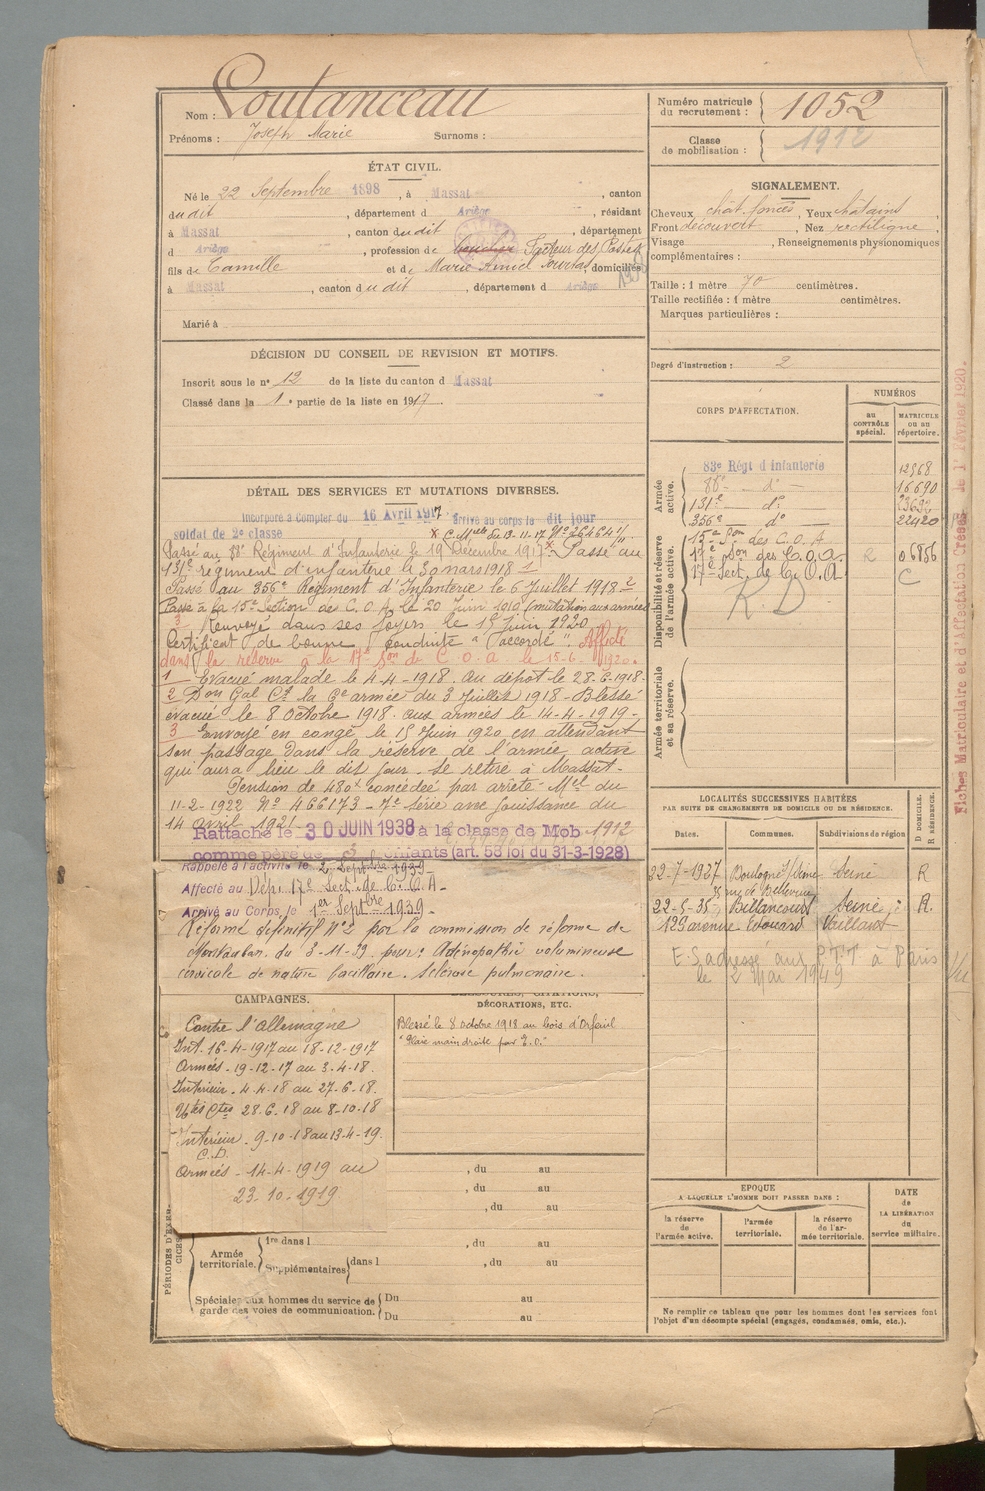 Nom : Coutanceau
Prénoms : Joseph Marie Surnoms :
ÉTAT CIVIL.
Né le 22 Septembre 1898, à Massat, canton
dudit, département d Ariège, résidant
à Massat, canton dudit, département
d Ariège, profession de boucher Facteur des Postes
fils de Camille et de Marie, domiciliés
à Massat, canton dudit, département d Ariège
Marié à
DÉCISION DU CONSEIL DE REVISION ET MOTIFS.
Inscrit sous le n° 12 de la liste du canton d Massat
Classé dans la 1e partie de la liste en 1917.
DÉTAIL DES SERVICES ET MUTATIONS DIVERSES.
Incorporé à compter du 16 Avril 1917. arrivé au corps le dit jour
soldat de 2e classe
Passé au Régiment d'Infanterie le 19 Décembre 1917 Passé au
131e régiment d'infanterie le 30 mars 1918 1
Passé au 356e Régiment d'Infanterie le 6 Juillet 1918 2
Passé à la 15e Section de C.O.A. le 20 Juin 1919 (mutation aux armées)
3 Renvoyé dans ses foyers le 15 Juin 1920.
Certificat de bonne conduite "accordé". Affecté
dans la réserve à la 17e Son de C.O.A. le 15-6-1920.
1 Evacué malade le 4-4-1918. au dépôt le 28-6-1918.
2 Don Gal Ct la 9e armée du 3 Juillet 1918 - Blessé
évacué le 8 Octobre 1918. aux armées le 14-4-1919-
3 Envoyé en congé le 15 Juin 1920 en attendant
son passage dans la réserve de l'armée active
qui aura lieu le dit jour. Se retire à Massat-
Pension de 480f concédée par arrêté Mel du
11-2-1922 N° 466173-7e série avec jouissance du
14 avril 1921.
Rattaché le 30 JUIN 1938 à la classe de Mob 1912
comme père de 3 enfants (art. 58 loi du 31-3-1928)
Rappelé à l'activité le 2 Septbre 1939-
Affecté au Dépt 17e Sect. de C.O.A-
Arrivé au Corps le 1er Septbre 1939-
Réformé définitif N°2 par la commission de réforme de
Montauban du 3-11-39 pour: Adénopathie volumineuse
cervicale de nature bacillaire. Sclérose pulmonaire.
CAMPAGNES.
Contre l'Allemagne
Int. 16-4-1917 au 18-12-1917
Armées-19-12-17 au 3-4-18.
Intérieur. 4-4-18 au 27-6-18.
Utés Ctes 28-6-18 au 8-10-18
Intérieur. 9-10-18 au 13-4-19.
C.D.
Armées-14-4-1919 au
23-10-1919
BLESSURES, CITATIONS,
DÉCORATIONS, ETC.
Blessé le 8 octobre 1918 au bois d'Orfeuil
"Plaie main droite par E.O."
, du au
, du au
, du au
PÉRIODES D'EXERCICES
Armée territoriale. 1re dans l , du au
Supplémentaires dans l , du au
Spéciales aux hommes du service de Du au
garde des voies de communication. Du au
Numéro matricule
du recrutement : 1052
Classe
de mobilisation : 1912
SIGNALEMENT.
Cheveux chât. foncés, Yeux châtains,
Front découvert, Nez rectiligne,
Visage , Renseignements physionomiques
complémentaires :
Taille : 1 mètre 70 centimètres.
Taille rectifiée : 1 mètre centimètres.
Marques particulières :
Degré d'instruction : 2
CORPS D'AFFECTATION.
NUMÉROS
au CONTRÔLE spécial.
MATRICULE ou au répertoire.
Armée active.
83e Régt d'Infanterie 12968
d° 16690
131e d°
356e d° 22420
Disponibilité et réserve de l'armée active.
15e Son des C.O.A
17e Son des C.O.A. R 06856
17e Sect. de C.O.A. C
R.D
Armée territoriale et sa réserve.
LOCALITÉS SUCCESSIVES HABITÉES
PAR SUITE DE CHANGEMENTS DE DOMICILE OU DE RÉSIDENCE.
D DOMICILE.
R RÉSIDENCE.
Dates. Communes. Subdivisions de région
22-7-1927 Boulogne s/Seine Seine R
rue de Bellevue
22-5-35 Billancourt Seine R.
129 avenue Edouard Vaillant
E.S adressé aux P.T.T à Paris
le 2 Mai 1949
EPOQUE
A LAQUELLE L'HOMME DOIT PASSER DANS :
la réserve de l'armée active.
l'armée territoriale.
la réserve de l'armée territoriale.
DATE
de
LA LIBÉRATION
du
service militaire.
Ne remplir ce tableau que pour les hommes dont les services font
l'objet d'un décompte spécial (engagés, condamnés, omis, etc.).
Fiches Matriculaire et d'Affectation Créées le 1er Février 1920.